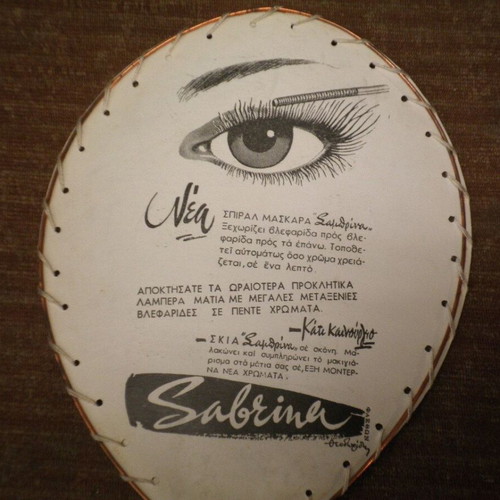 Νέα
ΣΠΙΡΑΛ ΜΑΣΚΑΡΑ "Σαμπρίνα„
Ξεχωρίζει βλεφαρίδα πρὸς βλε-
φαρίδα πρὸς τὰ ἐπάνω. Τοποθε-
τεῖ αὐτομάτως ὅσο χρῶμα χρειά-
ζεται, σὲ ἕνα λεπτό.
ΑΠΟΚΤΗΣΑΤΕ ΤΑ ΩΡΑΙΟΤΕΡΑ ΠΡΟΚΛΗΤΙΚΑ
ΛΑΜΠΕΡΑ ΜΑΤΙΑ ΜΕ ΜΕΓΑΛΕΣ ΜΕΤΑΞΕΝΙΕΣ
ΒΛΕΦΑΡΙΔΕΣ ΣΕ ΠΕΝΤΕ ΧΡΩΜΑΤΑ.
—Κάτι Καινούργιο
— ΣΚΙΑ "Σαμπρίνα„ σὲ σκόνη. Μα-
λακώνει καὶ συμπληρώνει τὸ μακιγιά-
ρισμα στὰ μάτια σας σὲ, ΕΞΗ ΜΟΝΤΕΡ-
ΝΑ ΝΕΑ ΧΡΩΜΑΤΑ.
Sabrina